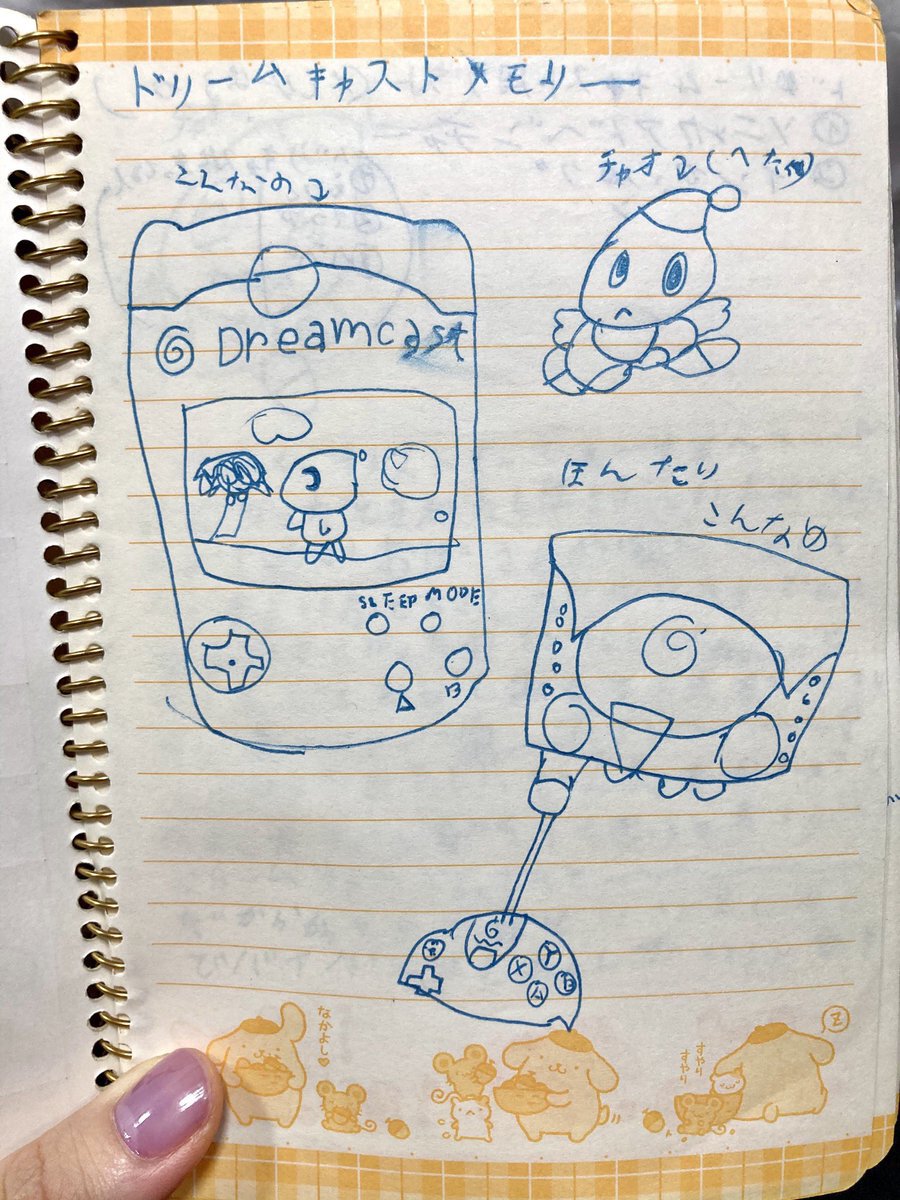 ドリームキャストメモリー
こんなの↴
チャオ↴(へた
Dreamcast
SLEEP MODE
A B
ほんたい
こんなの
X Y A B
なかよし♡
すやり すやり
Z